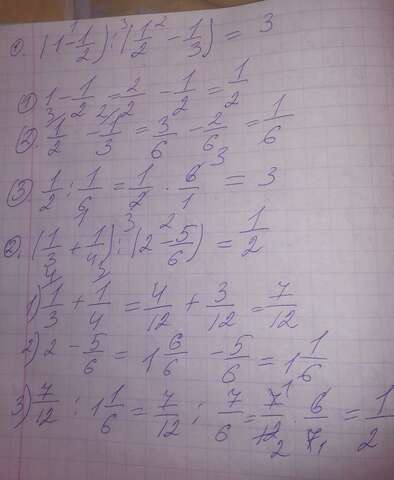 1. (1 - 1/2) : (1/2 - 1/3) = 3
1) 1 - 1/2 = 2/2 - 1/2 = 1/2
2). 1/2 - 1/3 = 3/6 - 2/6 = 1/6
3). 1/2 : 1/6 = 1/2 · 6/1 = 3
2. (1/3 + 1/4) : (2 - 5/6) = 1/2
1) 1/3 + 1/4 = 4/12 + 3/12 = 7/12
2) 2 - 5/6 = 1 6/6 - 5/6 = 1 1/6
3) 7/12 : 1 1/6 = 7/12 : 7/6 = 7/12 · 6/7 = 1/2